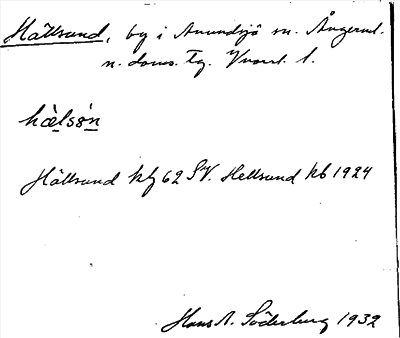 Hällsund, by i Anundsjö sn. Ångerml.
n. doms. Tg. Vnorrl. l.
hæ̀lsøn
Hällsund kfg 62 SV. Hellsund kb 1924
Hans A. Söderberg 1932